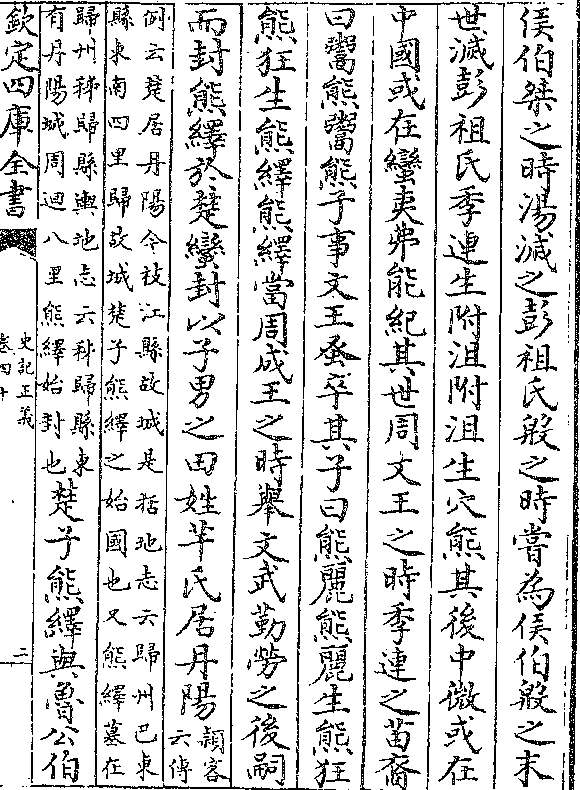 侯伯桀之時湯滅之彭祖氏殷之時嘗為侯伯殷之末
世滅彭祖氏季連生附沮附沮生穴熊其後中微或在
中國或在蠻夷弗能紀其世周文王之時季連之苗裔
曰鬻熊鬻熊子事文王蚤卒其子曰熊麗熊麗生熊狂
熊狂生熊繹熊繹當周成王之時舉文武勤勞之後嗣
而封熊繹於楚蠻封以子男之田姓芈氏居丹陽
潁容
云傳
例云楚居丹陽今枝江縣故城是括地志云歸州巴東
縣東南四里歸故城楚子熊繹之始國也又熊繹墓在
歸州秭歸縣輿地志云秭歸縣東
有丹陽城周迴八里熊繹始封也
楚子熊繹與魯公伯
欽定四庫全書
史記正義
卷四十
二